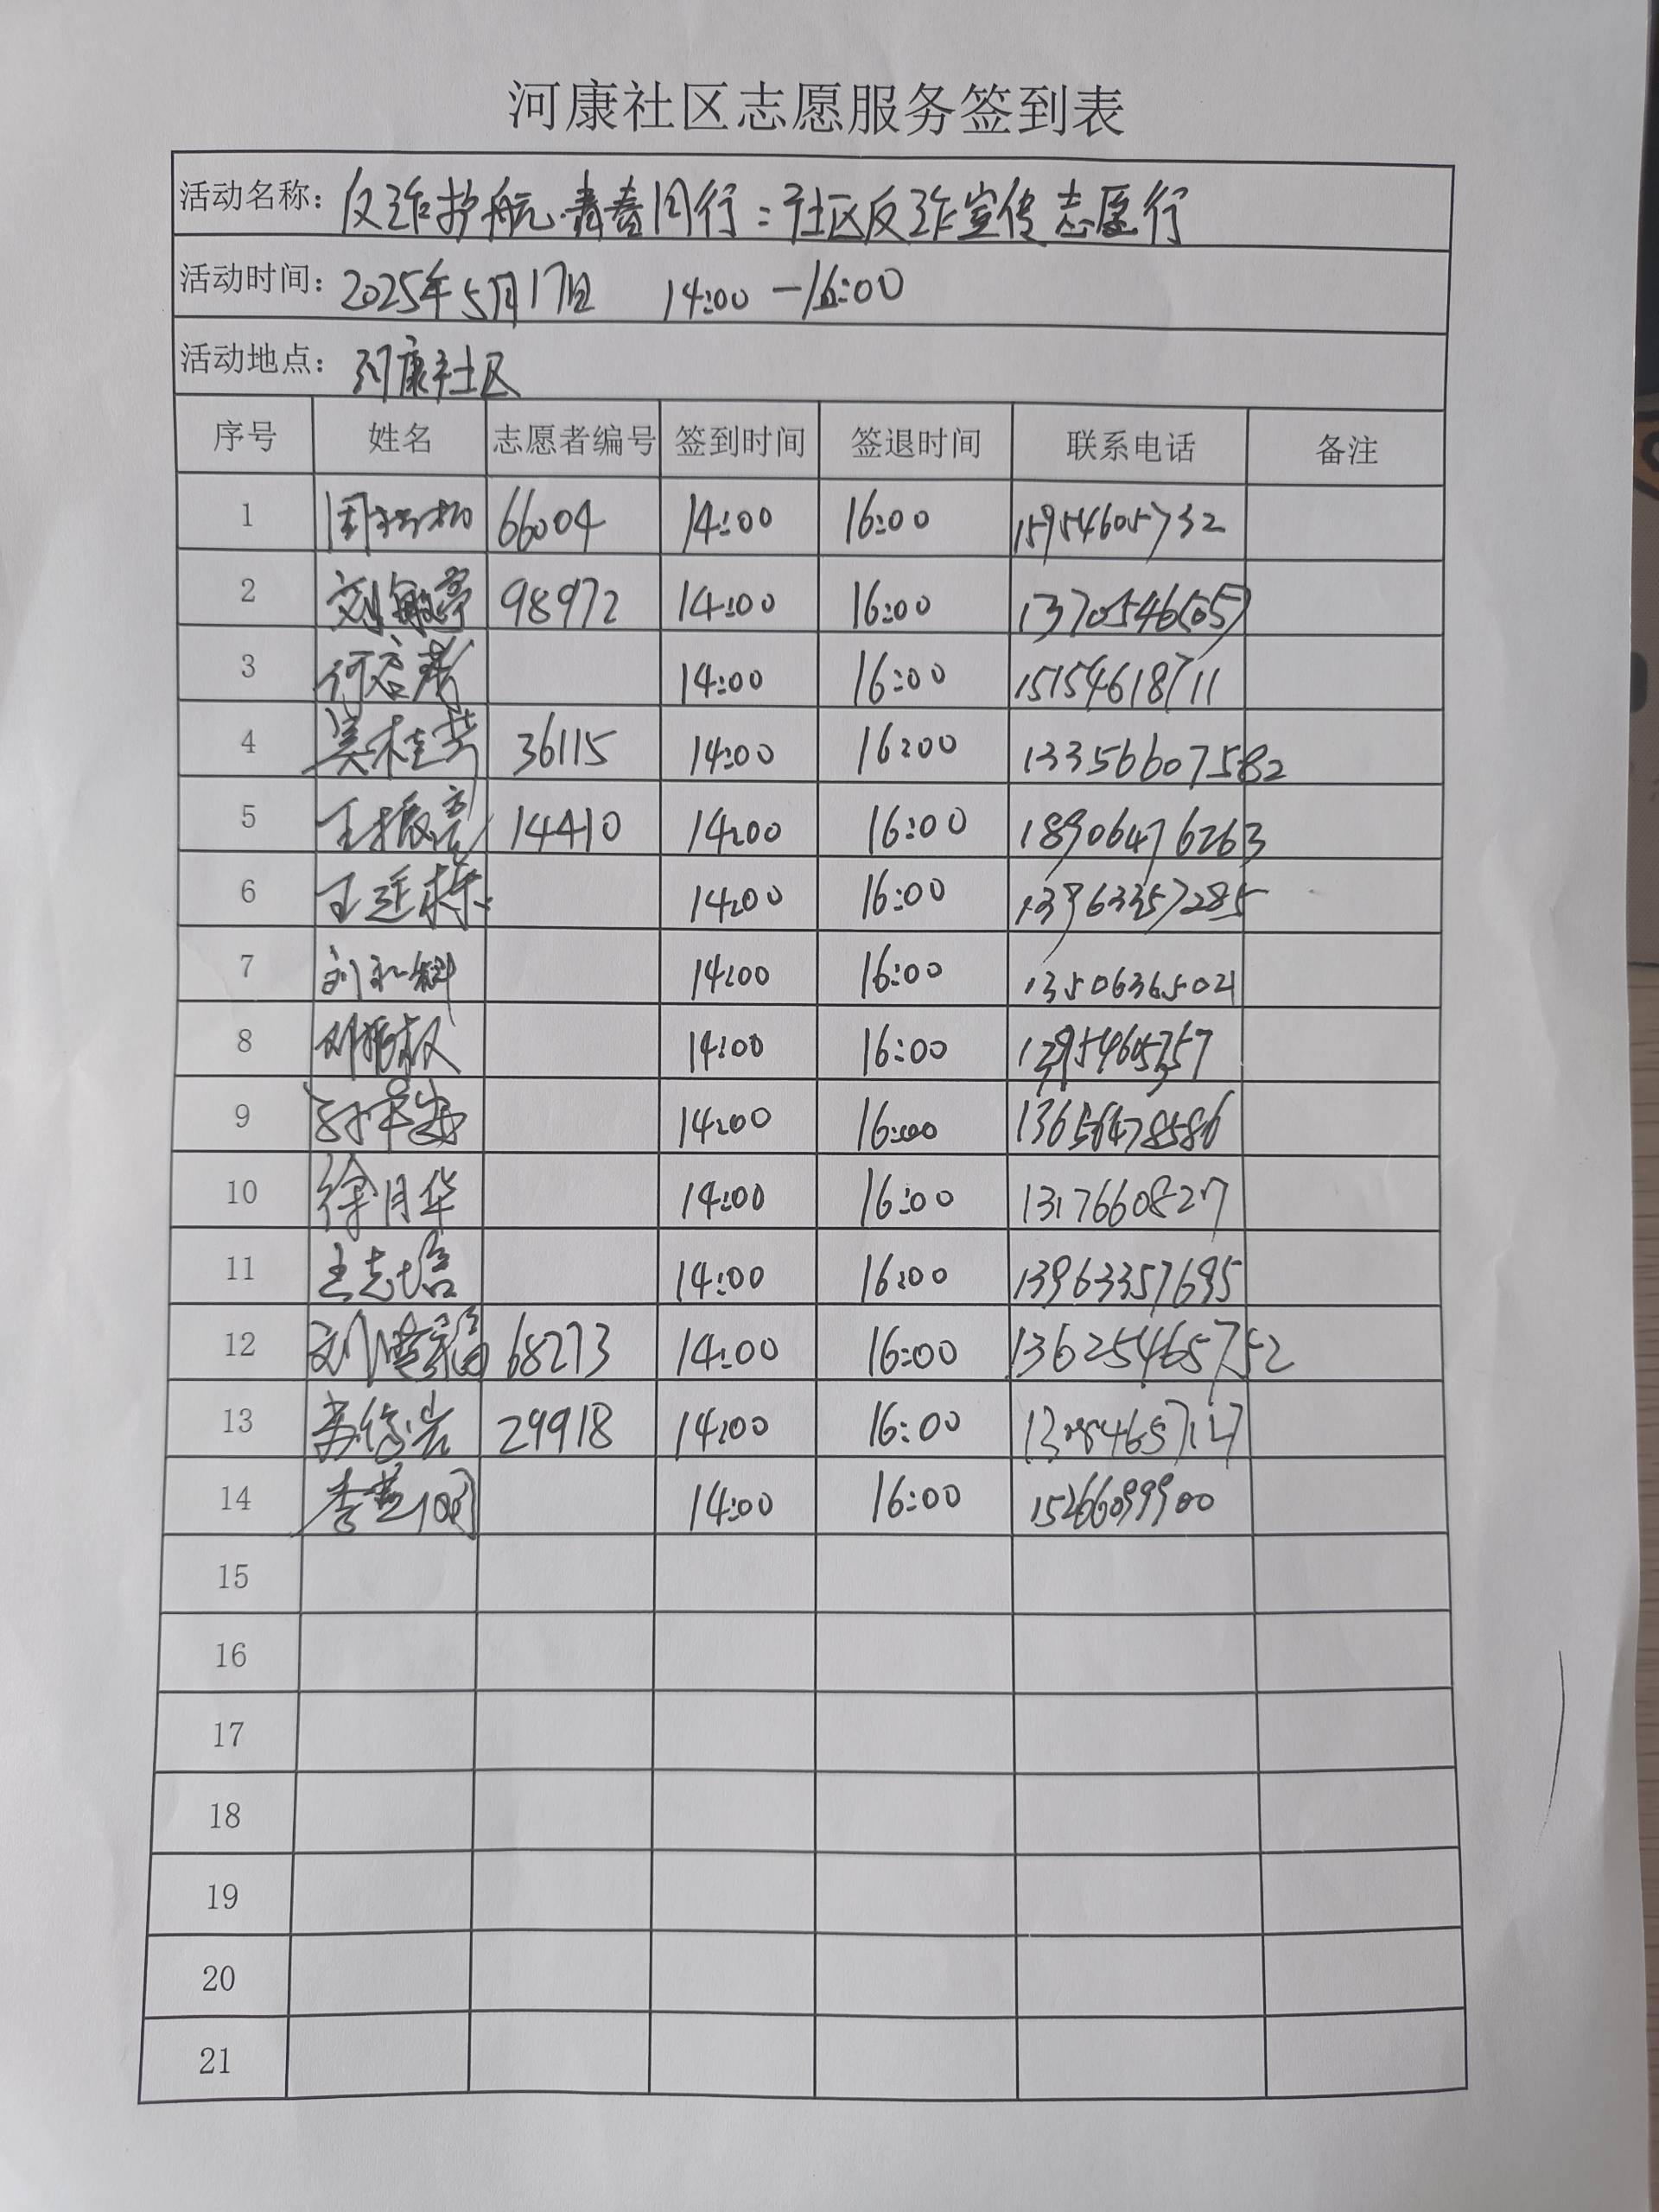 河康社区志愿服务签到表
活动名称: 反诈护航·青春同行:社区反诈宣传志愿行
活动时间: 2025年5月17日 14:00—16:00
活动地点: 河康社区
序号 姓名 志愿者编号 签到时间 签退时间 联系电话 备注
1 66004 14:00 16:00 15954605732
2 刘敏亭 98972 14:00 16:00
3 14:00 16:00 15154618711
4 吴桂芳 36115 14:00 16:00 13356607582
5 王振亮 14410 14:00 16:00 18906476263
6 王延栋 14:00 16:00 13963357285
7 14:00 16:00 13506365021
8 14:00 16:00
9 14:00 16:00
10 徐月华 14:00 16:00
11 王志培 14:00 16:00 13963357695
12 68273 14:00 16:00 13625465752
13 29918 14:00 16:00
14 14:00 16:00 15266099900
15
16
17
18
19
20
21